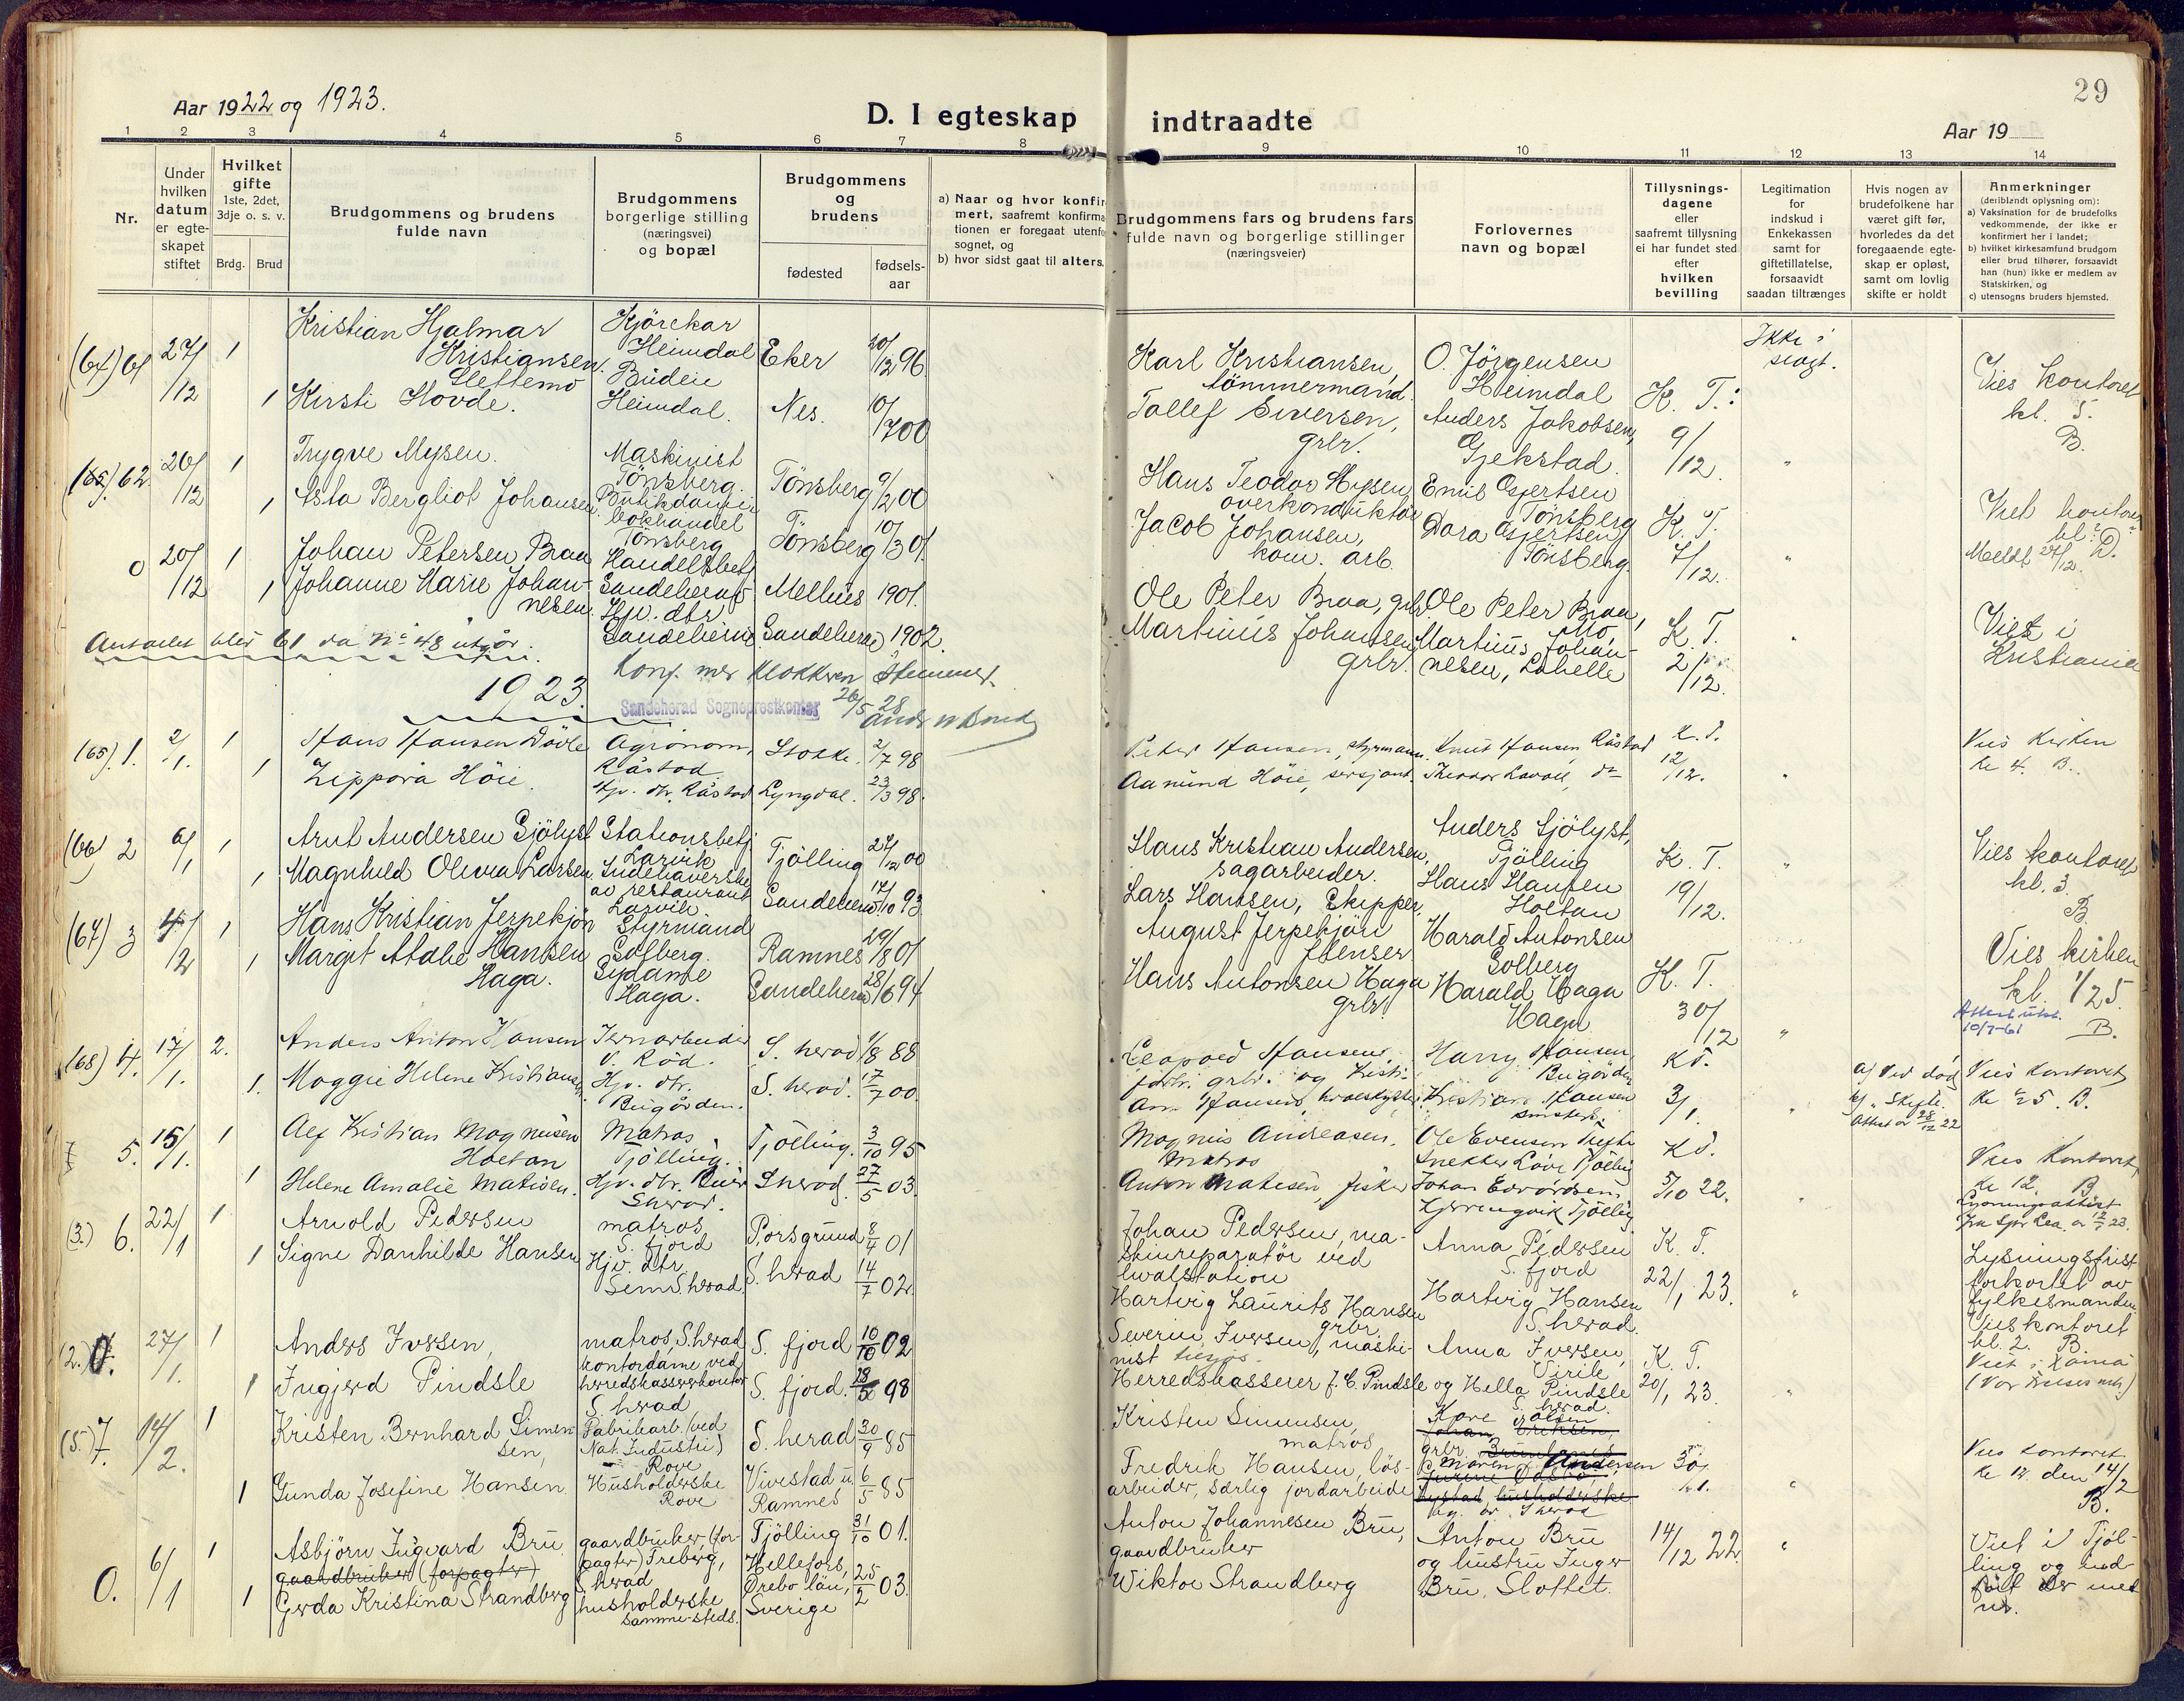 29
Aar 1922 og 1923.
D. I egteskap indtraadte
Aar 19
1 2 3 4 5 6 7 8 9 10 11 12 13 14
Nr.
Under
hvilken
datum
er egte-
skapet
stiftet
Hvilket
gifte
1ste, 2det,
3dje o. s. v.
Brdg. Brud
Brudgommens og brudens
fulde navn
Brudgommens
borgerlige stilling
(næringsvei)
og bopæl
Brudgommens
og
brudens
fødested
fødsels-
aar
a) Naar og hvor konfir
mert, saafremt konfirma
tionen er foregaat utenfo
sognet, og
b) hvor sidst gaat til alters.
Brudgommens fars og brudens fars
fulde navn og borgerlige stillinger
(næringsveier)
Forlovernes
navn og bopæl
Tillysnings-
dagene
eller
saafremt tillysning
ei har fundet sted
efter
hvilken
bevilling
Legitimation
for
indskud i
Enkekassen
samt for
giftetillatelse,
forsaavidt
saadan tiltrænges
Hvis nogen av
brudefolkene har
været gift før,
hvorledes da det
foregaaende egte-
skap er opløst,
samt om lovlig
skifte er holdt
Anmerkninger
(deriblandt oplysning om):
a) Vaksination for de brudefolks
vedkommende, der ikke er
konfirmert her i landet;
b) hvilket kirkesamfund brudgom
eller brud tilhører, forsaavidt
han (hun) ikke er medlem av
Statskirken, og
c) utensogns bruders hjemsted.
(64) 61
27/12
1
Kristian Hjalmar
Kristiansen
Slettemo
Kjörekar
Heimdal
Eker
20/12 96
Karl Kristiansen,
tömmermand.
O. Jörgensen
Heimdal
K. T.:
9/12.
Ikke i
slagt.
Vies kontoret
kl. 5.
B.
1
Kirsti Hovde.
Budeie
Heimdal.
Nes.
10/7 00
Tollef Siversen,
grbr.
Anders Jakobsen,
Gjekstad.
(65). 62
26/12
1
Trygve Mysen.
Maskinist
Tönsberg.
Tönsberg
9/2 00
Hans Teodor Mysen
overkonduktör
Emil Gjertsen
Tönsberg
K. T.
7/12.
Viet kontoret
Meldt 27/12. D.
1
Asta Bergliot Johansen
Butikdame i
bokhandel
Tönsberg
Tönsberg
10/3 01
Jacob Johansen,
kom. arb.
Dora Gjertsen,
Tönsberg.
0
20/12
1
Johan Petersen Braa
Handelsbetj
Sandeherad
Melhus
1901.
Ole Peter Braa, grbr.
Ole Peter Braa,
Mo,
K. T.
2/12.
Viet i
Kristiania
1
Johanne Marie Johan-
nesen.
Hjv. dtr.
Sandeherad
Sandeherad
1902.
Martinius Johansen
grbr.
Martinius Johan-
nesen, Labelle
Antallet blev 61 da No 48 utgår.
Konf. mer klokkeren Stemmer.
Sandeherad Sogneprestkontor
26/5 28
1923.
(65). 1.
2/1.
1
Hans Hansen Dövle
Agronom,
Råstad.
Stokke.
2/7 98
Peter Hansen, styrmann.
Knut Hansen, Råstad
K. T.
12/12.
Vies kirken
kl 4. B.
1
Zippora Höie.
Hjv. dtr. Råstad
Lyngdal.
23/3 98.
Aamund Höie, sersjant
(66) 2
6/1
1
Arnt Andersen Sjölyst
Stationsbetj
Larvik
Tjölling
27/12 00
Hans Kristian Andersen,
sagarbeider.
Anders Sjölyst,
Tjölling
K. T.
19/12.
Vies kontoret
kl. 3.
B
1
Magnhild Olivia Larsen
Indehaverske
av restaurant
Larvik
Sandeherad
17/10 93
Lars Hansen, Skipper,
Hans Hansen
Holtan
(67) 3
1
Hans Kristian Jerpekjön
Styrmand
Solberg.
Ramnes
29/8 01
August Jerpekjön
Harald Antonsen
Solberg
K. T.
30/12
Vies kirken
kl. 1/2 5.
10/7-61
B.
1
Margit Atalie Hansen
Haga.
Sydame
Haga.
Sandeherad
28/6 94
Hans Antonsen Haga
grbr.
Harald Haga
Haga
(68) 4.
17/1.
2.
Anders Anton Hansen
Jernarbeider
V. Röd.
S. herad
1/8 88
Leopold Hansen,
forh. grbr. og Kristi-
Harry Hansen
Bugården
K T.
3/1.
a) Ved död
b) " Skifte.
Attest av 28/12 22
Vies kontoret
kl 5. B.
1.
Maggie Helene Kristiansen
Hjv. dtr.
Bugården.
S. herad.
17/7 00.
Kristian Hansen
5.
15/1.
1
Alf Kristian Magnusen
Holtan
Matros
Tjölling.
Tjölling.
3/10 95
Magnus Andreasen,
Matros
K T.
5/10 22.
Vies kontoret
kl 12. B
1
Helene Amalie Matisen.
S. herad.
27/5 03.
Anton Matisen, fisker
Johan Edvardsen
Kjerringvik Tjölling
(3.) 6.
22/1
1
Arnold Pedersen
matros
S. fjord
Porsgrund
8/4 01
Johan Pedersen, ma-
skinreparatör ved
hvalstation
Anna Pedersen
S. fjord
K. T.
22/1 23.
Lysningsfrist
forkortet av
fylkesmanden
Vies kontoret
kl. 2. B.
1
Signe Danhilde Hansen
Hjv. dtr.
Sem S. herad
S. herad
14/7 02
Hartvig Laurits Hansen
grbr.
Hartvig Hansen
S. herad.
(2.) 0.
27/1.
1
Anders Iversen,
matros, S. herad
S. fjord
10/10 02
Severin Iversen, maski-
nist
Anna Iversen,
Virik
K. T.
20/1 23.
1
Ingjerd Pindsle
kontordame ved
herredskassererkontor
S. herad
S. fjord.
98
Herredskasserer J. C. Pindsle
og Hella Pindsle
S. herad.
(5.) 7.
14/2.
1
Kristen Bernhard Simen-
sen,
Fabrikarb. (ved
Nat. Industri)
Rove
S. herad
30/9 85
Kristen Simensen,
matros
30/1.
Vies kontoret
kl 12. den 14/2
B.
1
Gunda Josefine Hansen.
Husholderske
Rove
Vivestad u.
Ramnes
6/5 85
Fredrik Hansen, lös-
arbeider, særlig jordarbeide
0.
6/1
1
Asbjörn Ingvard Bru
gaardbruker (forpagter)
gaardbruker, (for-
pagter) Freberg,
S. herad
Tjölling
31/10 01.
Anton Johannesen Bru,
gaardbruker
Anton Bru
og hustru Inger
Bru, Slottet.
14/12 22.
Viet i Tjöl-
ling og ind-
fört der med
nr.
1
Gerda Kristina Strandberg
husholderske
sammesteds.
Hellefors,
Örebo län,
Sverige
25/2 03.
Wiktor Strandberg